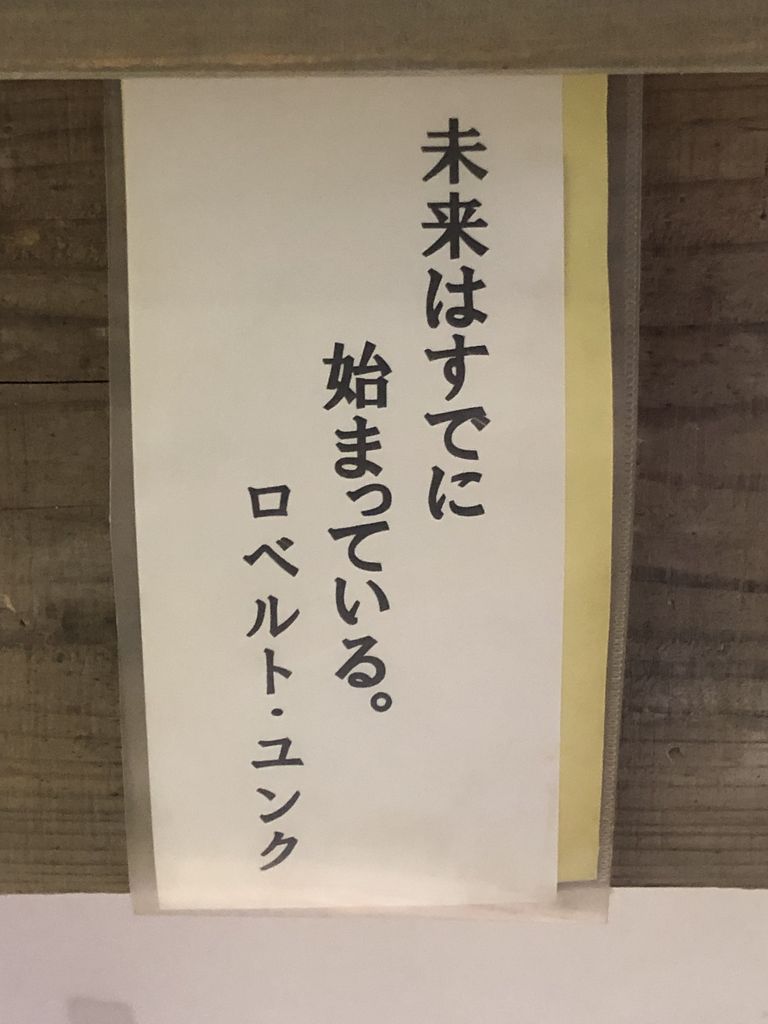 未来はすでに
始まっている。
ロベルト・ユンク